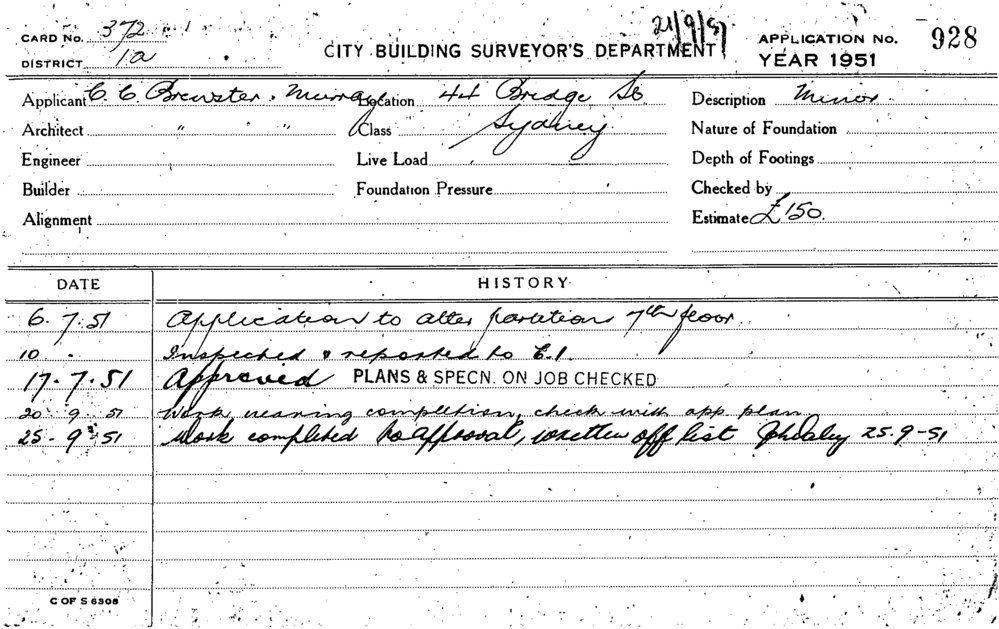 21/9/51
CARD No. 372
DISTRICT 1a
CITY BUILDING SURVEYOR'S DEPARTMENT
APPLICATION No. 928
YEAR 1951
Applicant C. C. Brewster, Murray Location 44 Bridge St Description Minor
Architect " " Class Sydney Nature of Foundation
Engineer Live Load Depth of Footings
Builder Foundation Pressure Checked by
Alignment Estimate £150.
DATE HISTORY
6. 7. 51 Application to alter partition 7th floor.
10 . Inspected & reported to E.I.
17. 7. 51 Approved PLANS & SPECN. ON JOB CHECKED
20 9 51 Work nearing completion, check with app. plan
25. 9. 51 Work completed to approval, written off list 25.9-51
C OF S 6308